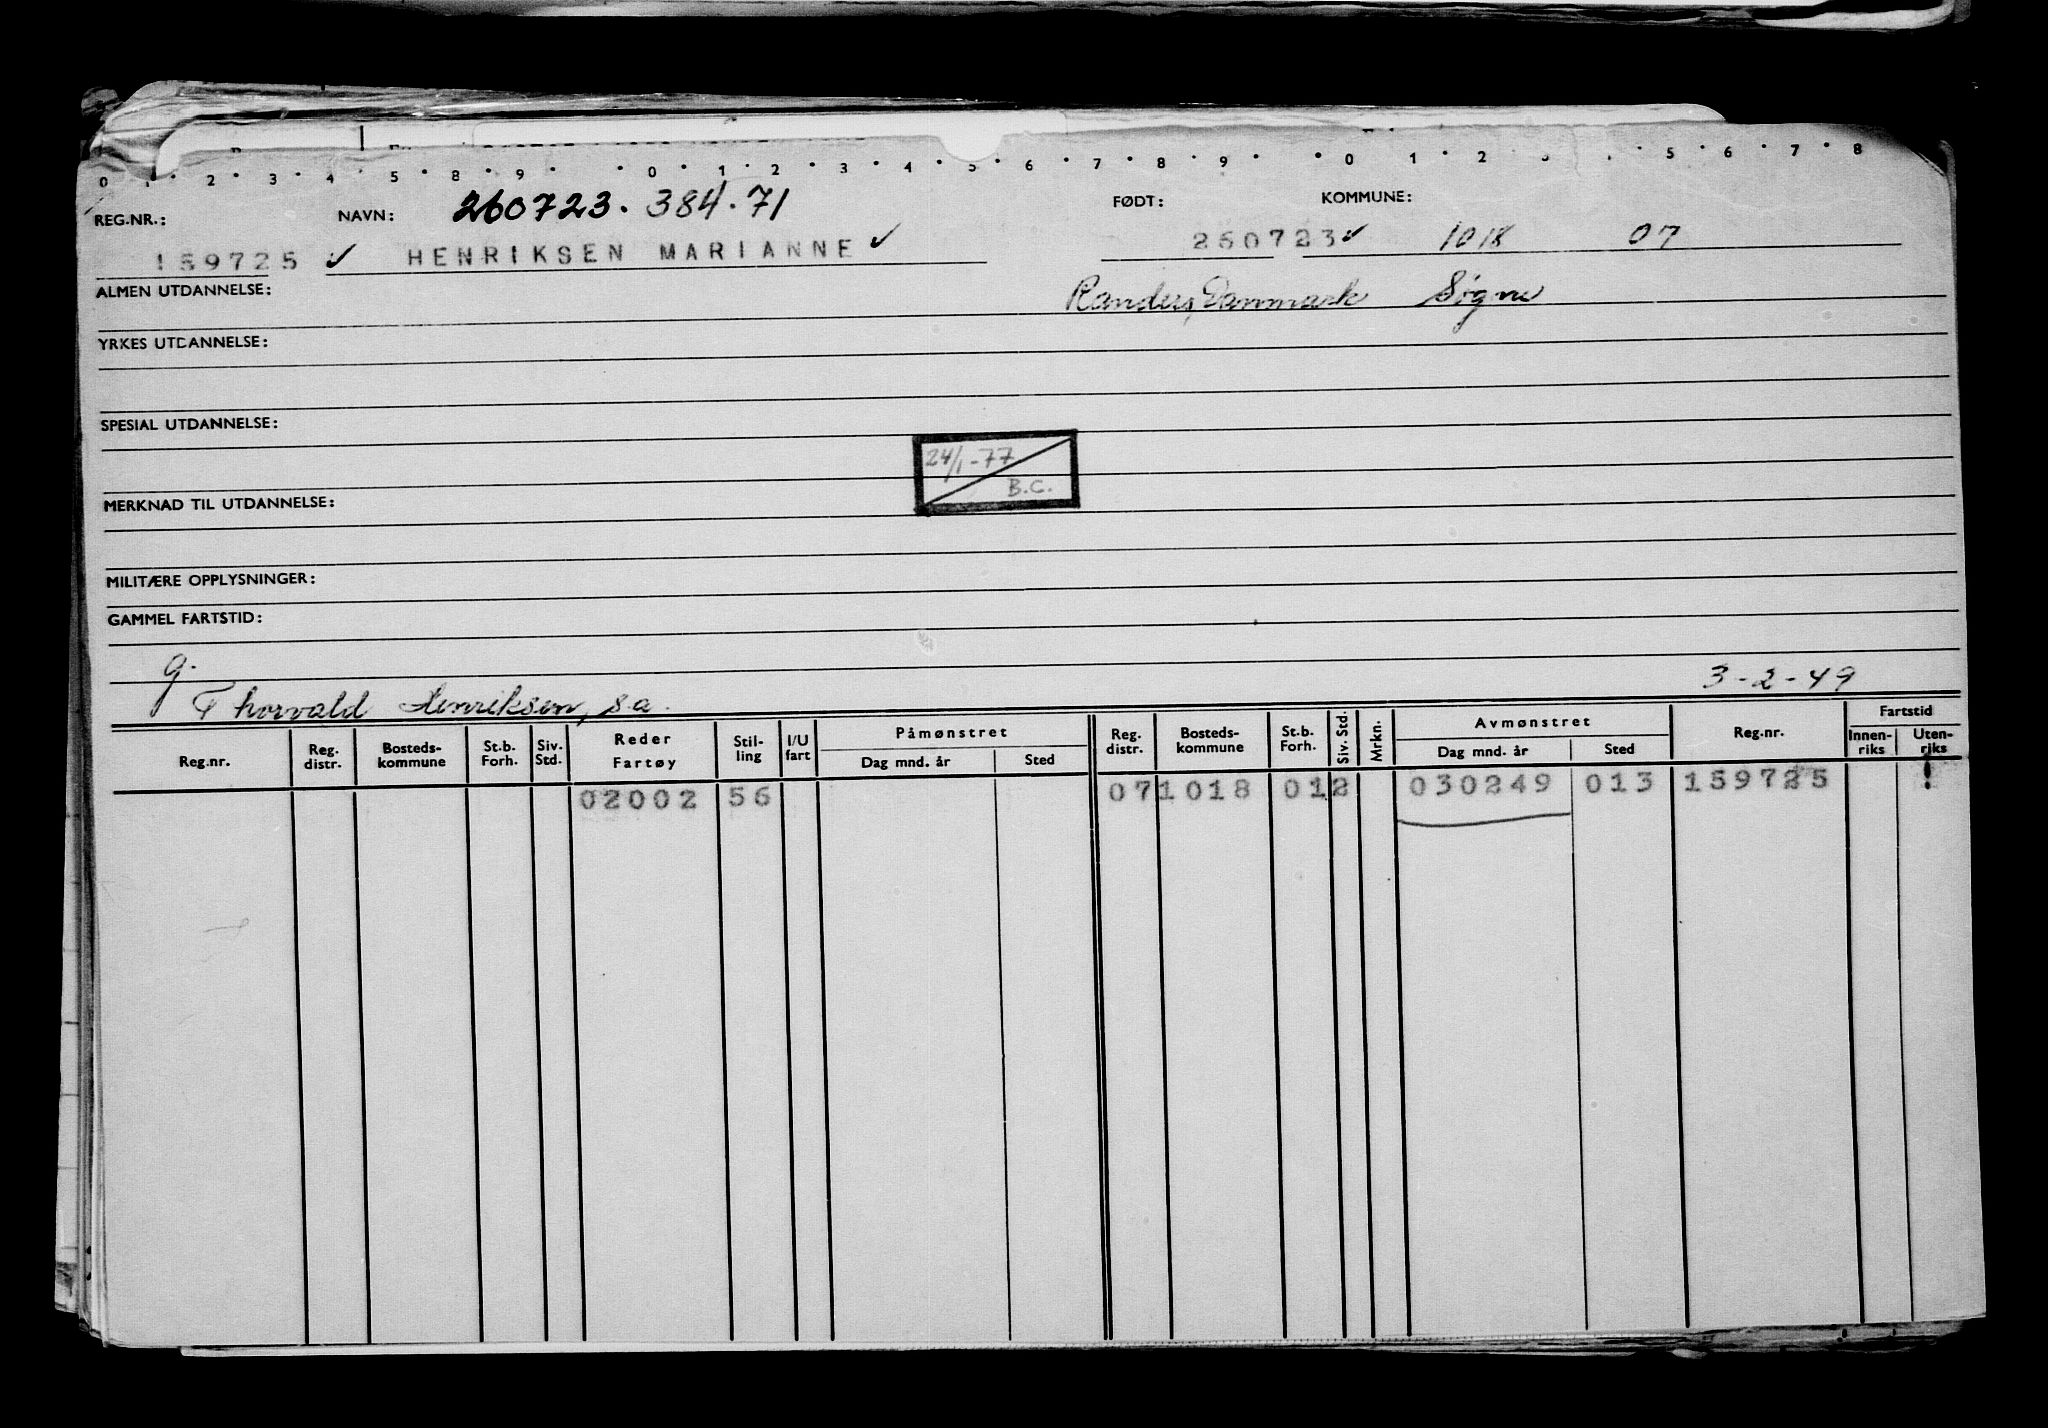 0 1 · 2 · 3 · 4 · 5 · 8 · 9 · · 0 · 1 · 2 · 3 · 4 · 5 · 6 · 7 · 8 · 9 · · 0 · 1 · 2 · 3 · 5 · 6 · 7 · 8
REG.NR.: NAVN: 260723. 384.71 FØDT: KOMMUNE:
159725 ✓ HENRIKSEN MARIANNE ✓ 260723 ✓ 1018 07
ALMEN UTDANNELSE: Randers, Danmark Søgne
YRKES UTDANNELSE:
SPESIAL UTDANNELSE:
24/1-77
B.C.
MERKNAD TIL UTDANNELSE:
MILITÆRE OPPLYSNINGER:
GAMMEL FARTSTID:
g.
Thorvald Henriksen, s.a. 3-2-49
Reg.nr. Reg. distr. Bosteds-kommune St.b. Forh. Siv. Std. Reder Fartøy Stil-ling I/U fart Påmønstret Dag mnd. år Sted Reg. distr. Bosteds-kommune St.b. Forh. Siv. Std. Mrkn. Avmønstret Dag mnd. år Sted Reg.nr. Fartstid Innen-riks Uten-riks
02002 56 07 1018 01 2 030249 013 159725